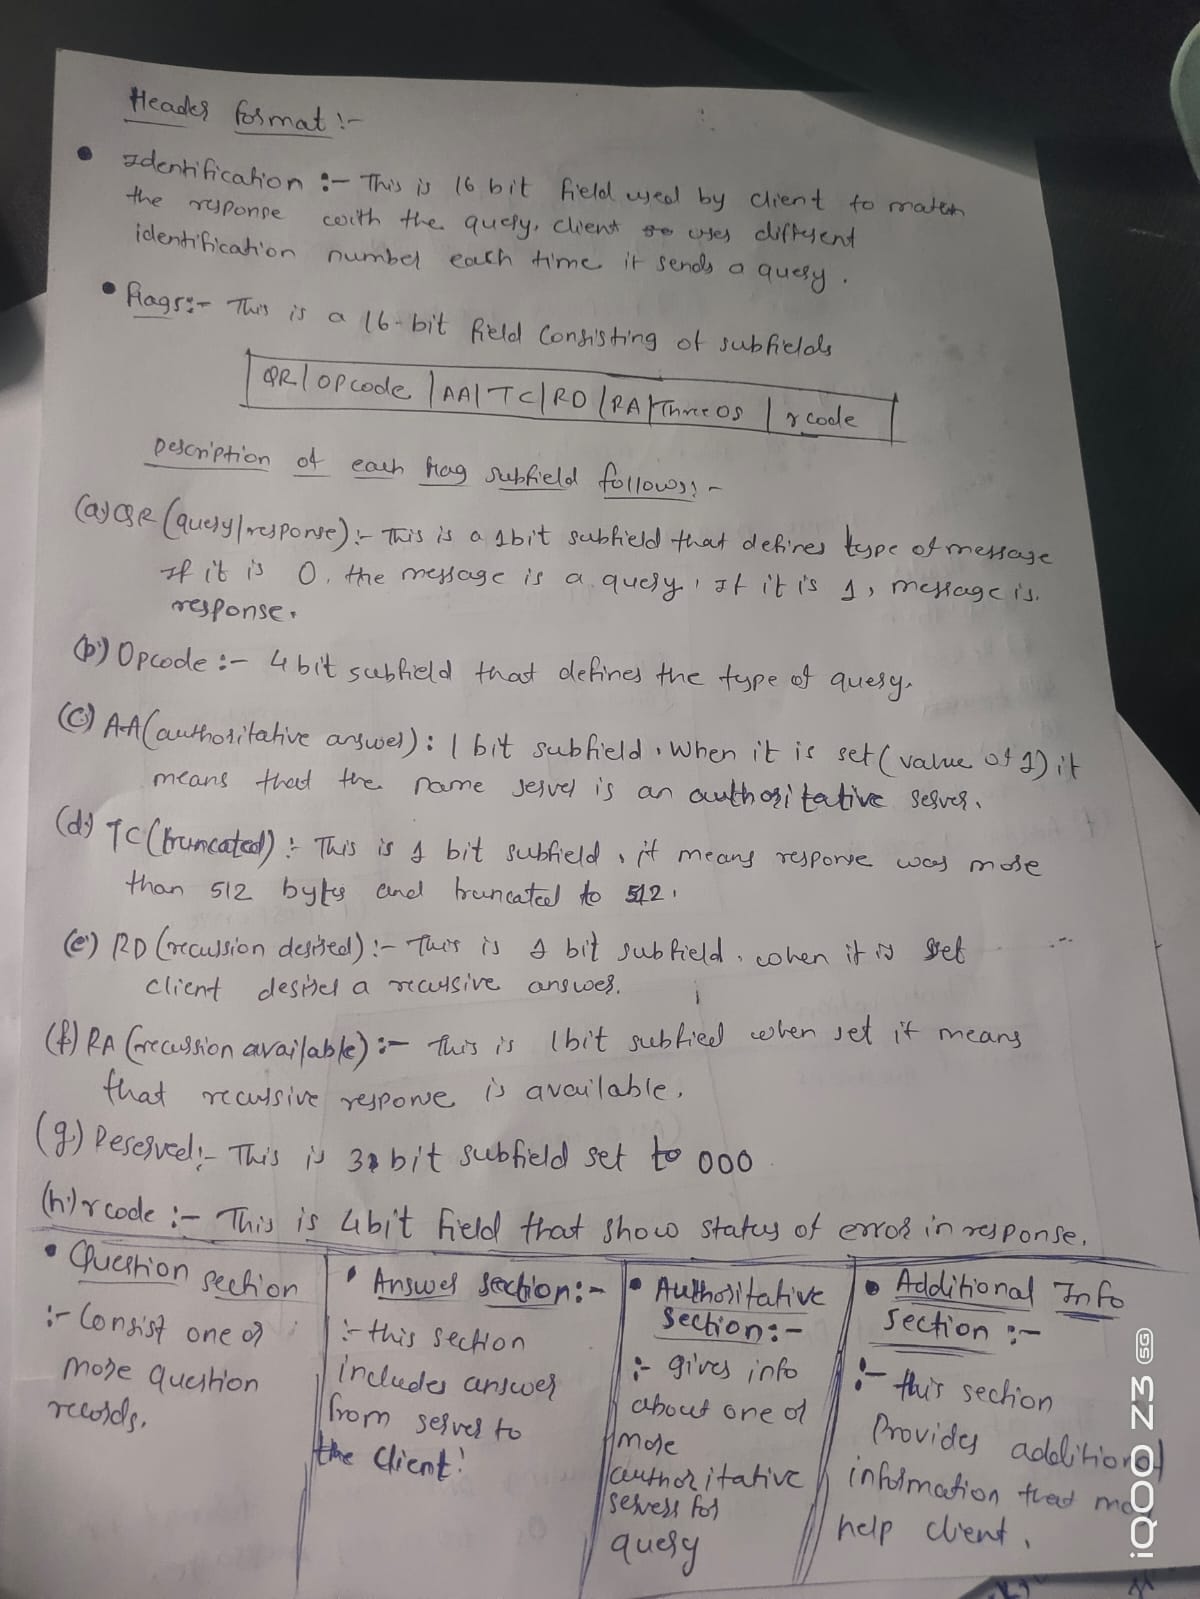 Header format :-
• Identification :- This is 16 bit field used by client to match
the response with the query. client uses different
identification number each time it sends a query.
• flags:- This is a 16-bit field consisting of subfields
QR | OPcode | AA | TC | RD | RA | Three 0S | rcode
Description of each flag subfield follows:-
(a) QR (query/response):- This is a 1bit subfield that defines type of message
If it is 0, the message is a query, If it is 1, message is.
response.
(b) Opcode :- 4 bit subfield that defines the type of query.
(c) AA (authoritative answer) : 1 bit subfield. When it is set (value of 1) it
means that the name server is an authoritative server.
(d) TC (truncated) :- This is 1 bit subfield, it means response was more
than 512 bytes and truncated to 512.
(e) RD (recursion desired) :- This is 1 bit subfield. when it is set
client desires a recursive answer.
(f) RA (recursion available) :- This is 1bit subfied when set it means
that recursive response is available.
(g) Reserved:- This is 3 bit subfield set to 000
(h) rcode :- This is 4bit field that show status of error in response.
• Question section
:- Consist one or
more question
records.
• Answer section:-
:- this section
includes answer
from server to
the client.
• Authoritative
Section:-
:- gives info
about one or
more
authoritative
servers for
query
• Additional Info
Section :-
:- this section
Provides additional
information that may
help client.
iQOO Z3 5G